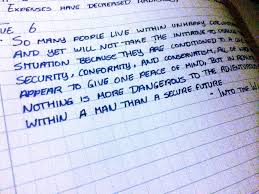 EXPENSES HAVE DECREASED
6
SO MANY PEOPLE LIVE WITHIN UNHAPPY
AND YET WILL NOT TAKE THE INITIATIVE TO
SITUATION BECAUSE THEY ARE CONDITIONED TO A
SECURITY, CONFORMITY, AND CONSERVATISM, ALL OF
APPEAR TO GIVE ONE PEACE OF MIND, BUT IN
NOTHING IS MORE DANGEROUS TO THE ADVENTUROUS
WITHIN A MAN THAN A SECURE FUTURE.
- INTO THE